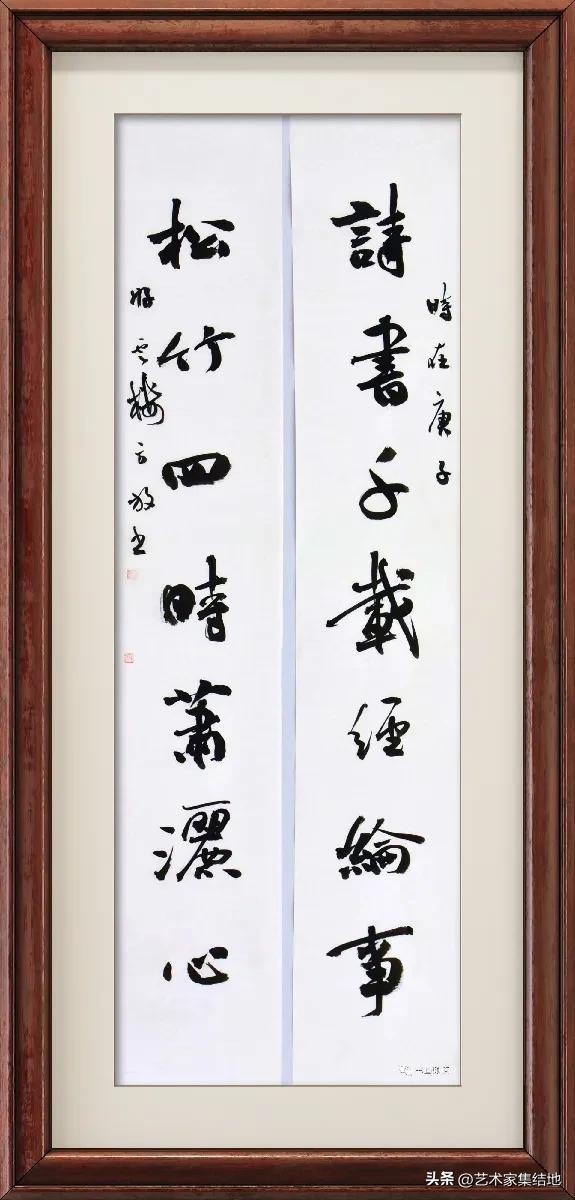 時在庚子
詩書千載經綸事
松竹四時蕭灑心
樓方放书
头条 @艺术家集结地